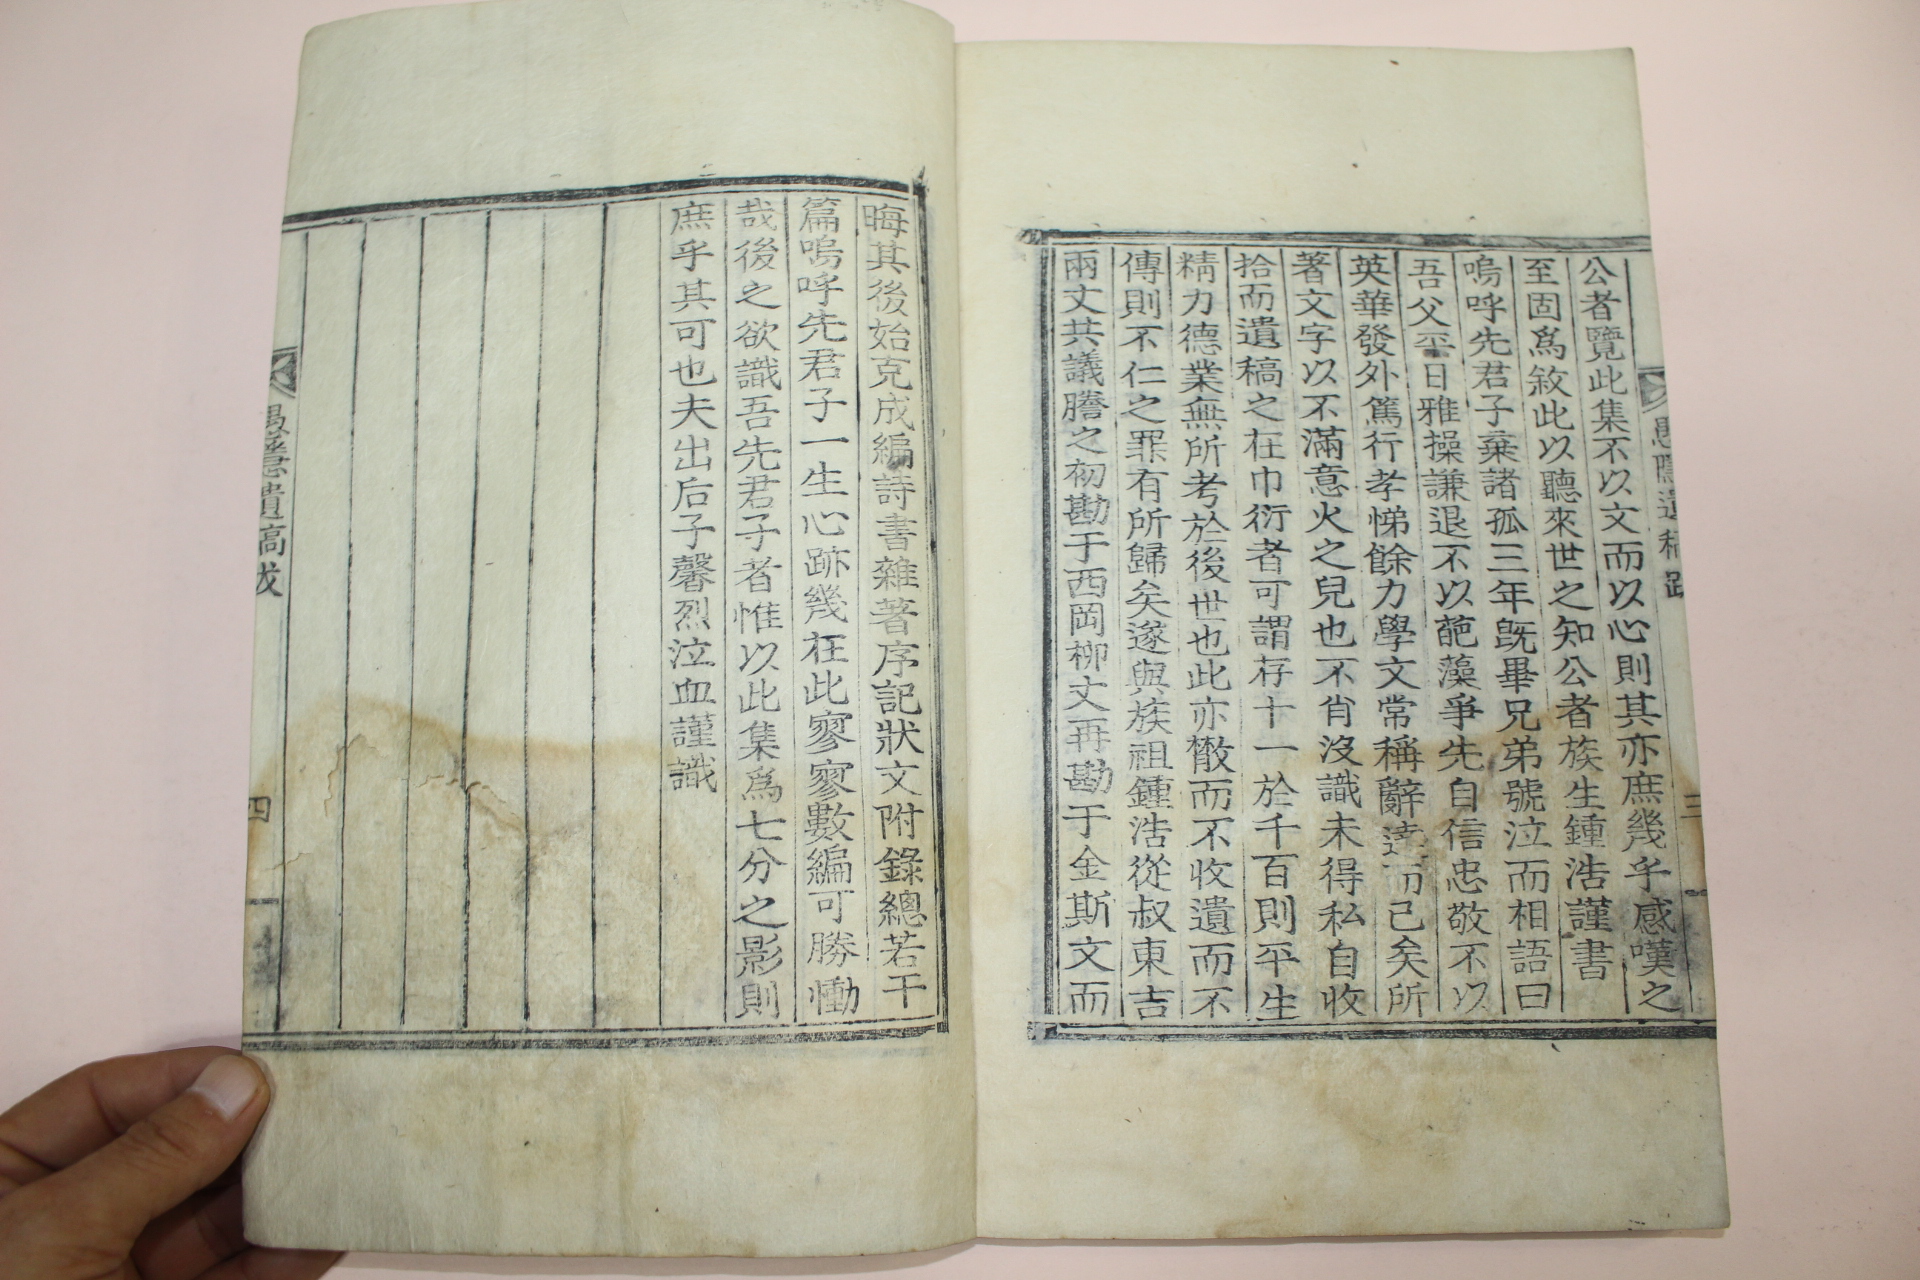 愚隱遺稿 跋
三
公者覽此集不以文而以心則其亦庶幾乎感嘆之
至固爲敘此以聽來世之知公者族生鍾浩謹書
嗚呼先君子棄諸孤三年旣畢兄弟號泣而相語曰
吾父平日雅操謙退不以葩藻爭先自信忠敬不以
英華發外篤行孝悌餘力學文常稱辭達而已矣所
著文字以不滿意火之兒也不肖沒識未得私自收
拾而遺稿之在巾衍者可謂存十一於千百則平生
精力德業無所考於後世也此亦散而不收遺而不
傳則不仁之罪有所歸矣遂與族祖鍾浩從叔東吉
兩丈共議謄之初勘于西岡柳丈再勘于金斯文而
晦其後始克成編詩書雜著序記狀文附錄總若干
篇嗚呼先君子一生心跡幾在此寥寥數編可勝慟
哉後之欲識吾先君子者惟以此集爲七分之影則
庶乎其可也夫出后子馨烈泣血謹識
愚隱遺稿跋
四